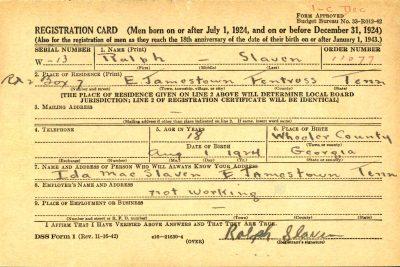 1-C Dec
FORM APPROVED
Budget Bureau No. 33-R012-42
REGISTRATION CARD (Men born on or after July 1, 1924, and on or before December 31, 1924)
(Also for the registration of men as they reach the 18th anniversary of the date of their birth on or after January 1, 1943.)
SERIAL NUMBER 1. NAME (Print) ORDER NUMBER
W-13 Ralph - Slaven 11077
(First) (Middle) (Last)
2. PLACE OF RESIDENCE (Print)
Rt 2 Box 7 E Jamestown Fentress Tenn
(Number and street) (Town, township, village, or city) (County) (State)
(THE PLACE OF RESIDENCE GIVEN ON LINE 2 ABOVE WILL DETERMINE LOCAL BOARD
JURISDICTION; LINE 2 OF REGISTRATION CERTIFICATE WILL BE IDENTICAL)
3. MAILING ADDRESS
(Mailing address if other than place indicated on line 2. If same, insert word same)
4. TELEPHONE 5. AGE IN YEARS 6. PLACE OF BIRTH
18 Wheeler County
DATE OF BIRTH (Town or county)
Aug 1 1924 Georgia
(Exchange) (Number) (Mo.) (Day) (Yr.) (State or country)
7. NAME AND ADDRESS OF PERSON WHO WILL ALWAYS KNOW YOUR ADDRESS
Ida Mae Slaven E Jamestown Tenn
8. EMPLOYER'S NAME AND ADDRESS
not working
9. PLACE OF EMPLOYMENT OR BUSINESS
(Number and street or R. F. D. number) (Town) (County) (State)
I AFFIRM THAT I HAVE VERIFIED ABOVE ANSWERS AND THAT THEY ARE TRUE.
DSS Form 1 (Rev. 11-16-42) 16-21630-4 Ralph Slaven
(OVER) (Registrant's signature)